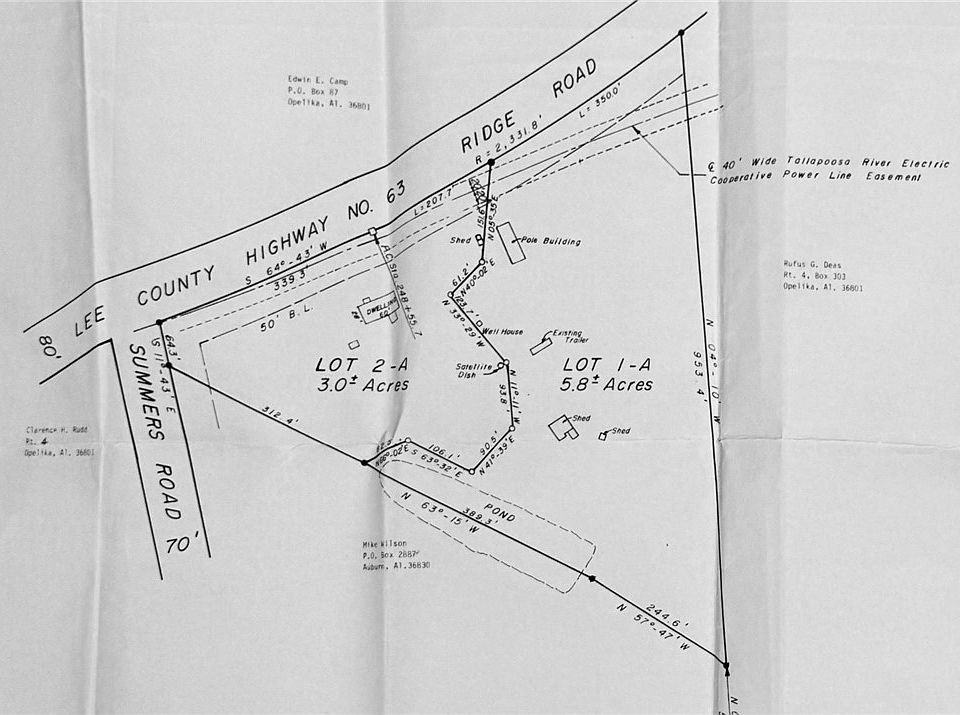 Edwin E. Camp
P.O. Box 87
Opelika, Al. 36801
80'
LEE COUNTY HIGHWAY NO. 63
RIDGE ROAD
R = 2,331.8'
L = 350.0'
L = 207.7'
S 64°-43' W
339.3'
℄ 40' Wide Tallapoosa River Electric
Cooperative Power Line Easement
Rufus G. Deas
Rt. 4, Box 303
Opelika, Al. 36801
50' B.L.
A.C. Sta. 248+55.7
DWELLING
151.6'
N 05°-35' E
Shed
Pole Building
61.2'
N 40°-02' E
123.7'
N 33°-29' W
Well House
Existing
Trailer
Satellite
Dish
64.3'
S 11°-43' E
SUMMERS ROAD 70'
LOT 2-A
3.0± Acres
LOT 1-A
5.8± Acres
N 04°-10' W
953.4'
N 11°-11' W
93.8'
Shed
Shed
312.4'
N 66°-02' E
106.1'
S 63°-32' E
90.5'
N 41°-39' E
Clarence H. Rudd
Rt. 4
Opelika, Al. 36801
POND
389.3'
N 63°-15' W
Mike Wilson
P.O. Box 2887
Auburn, Al. 36830
244.6'
N 57°-47' W